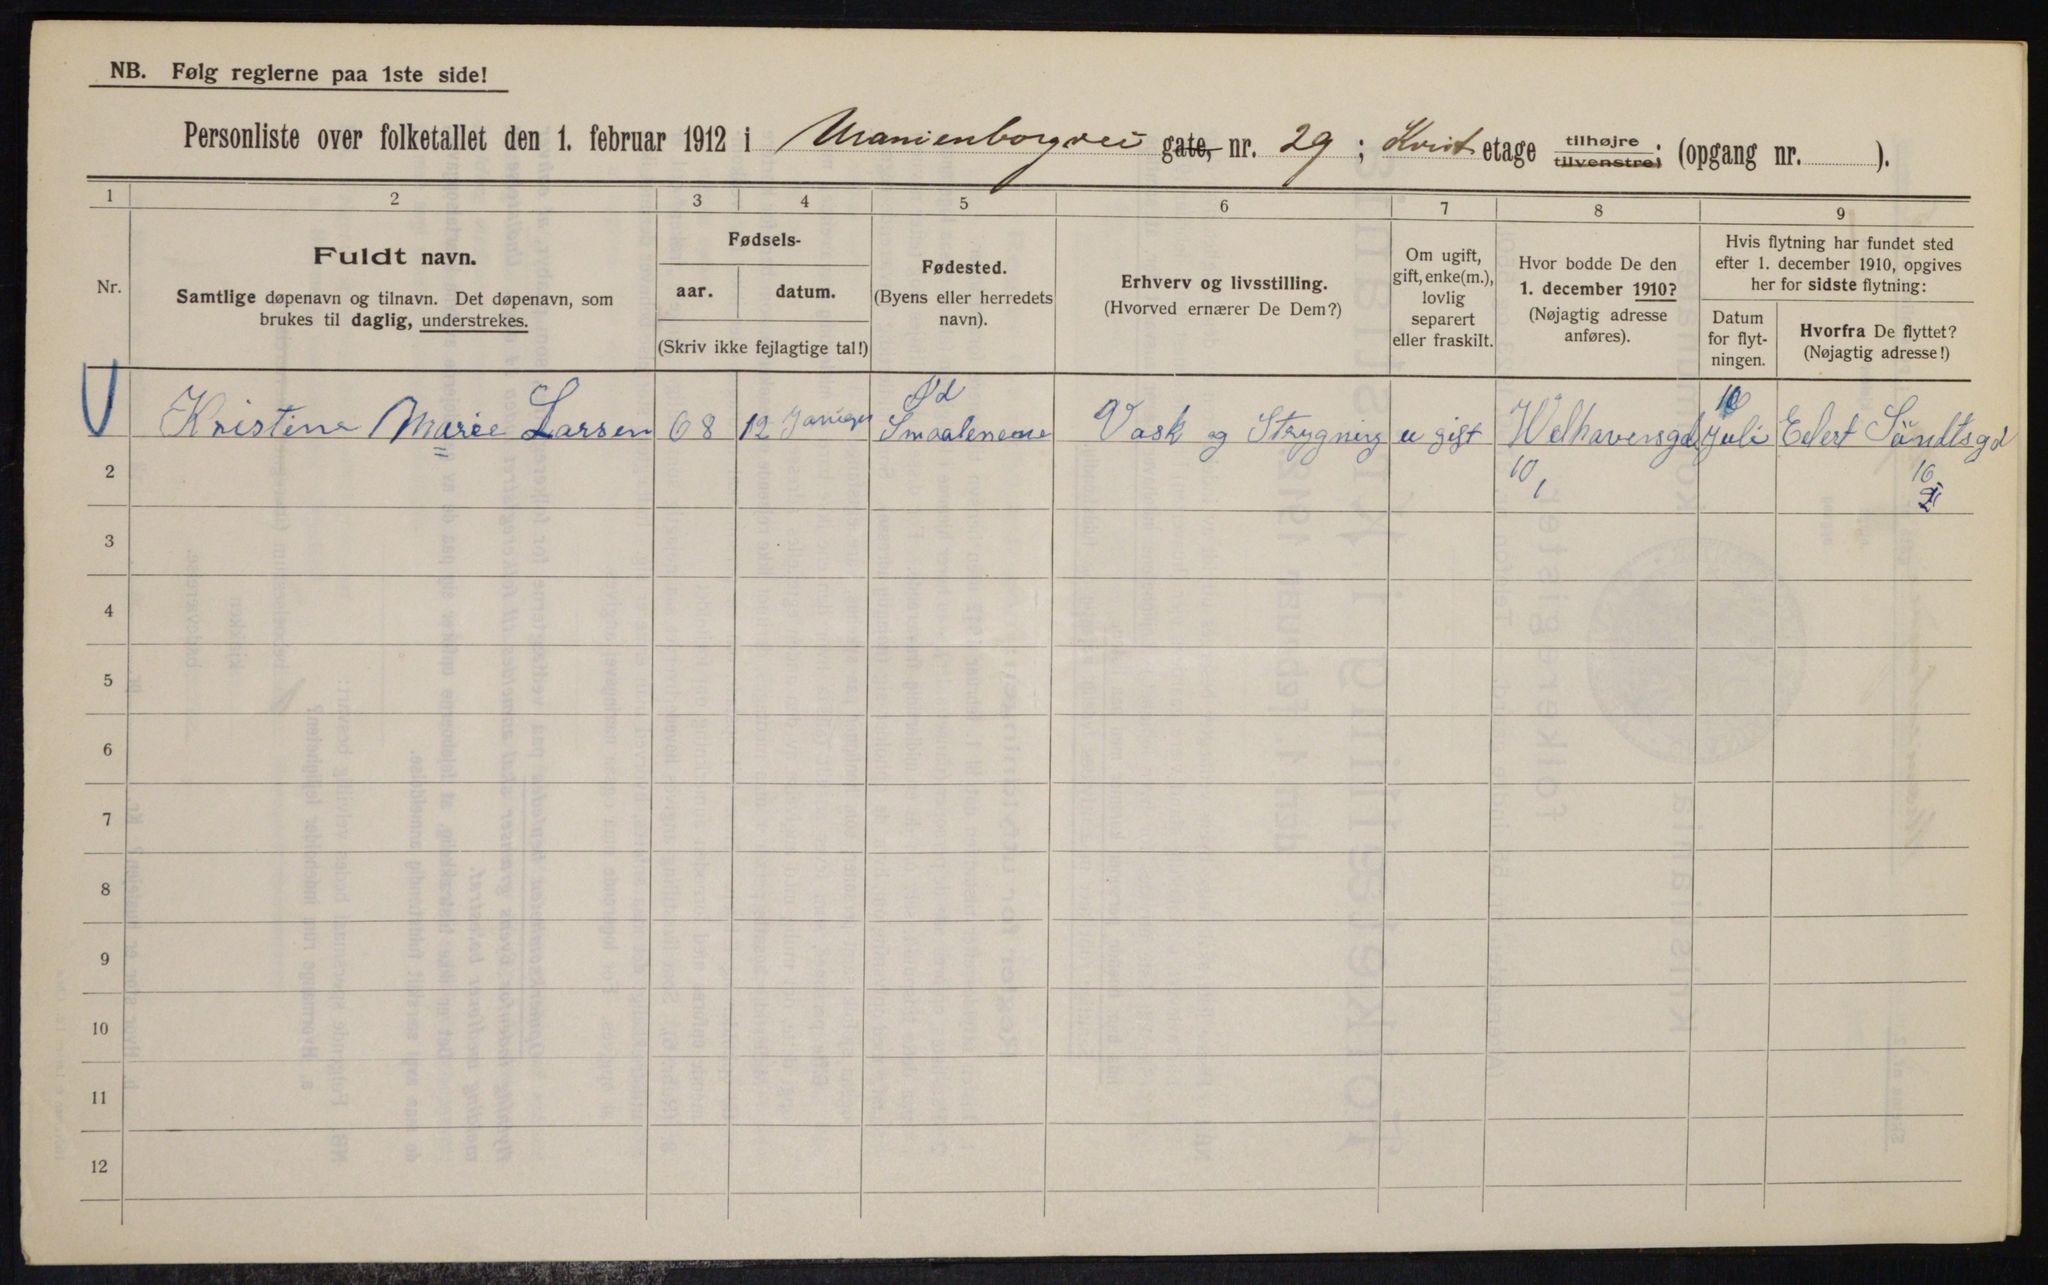 NB. Følg reglerne paa 1ste side!
Personliste over folketallet den 1. februar 1912 i Uranienborgvei gate, nr. 29; Kvist etage tilhøjre tilvenstre; (opgang nr. ).
1 2 3 4 5 6 7 8 9
Nr.
Fuldt navn.
Samtlige døpenavn og tilnavn. Det døpenavn, som
brukes til daglig, understrekes.
Fødsels-
aar. datum.
(Skriv ikke fejlagtige tal!)
Fødested.
(Byens eller herredets
navn).
Erhverv og livsstilling.
(Hvorved ernærer De Dem?)
Om ugift,
gift, enke(m.),
lovlig
separert
eller fraskilt.
Hvor bodde De den
1. december 1910?
(Nøjagtig adresse
anføres).
Hvis flytning har fundet sted
efter 1. december 1910, opgives
her for sidste flytning:
Datum
for flyt-
ningen.
Hvorfra De flyttet?
(Nøjagtig adresse!)
Kristine Marie Larsen 68 12 Smaalenene Vask og Strygning u gift Welhavensgd Juli Eilert Sundtsgd
10
2
3
4
5
6
7
8
9
10
11
12